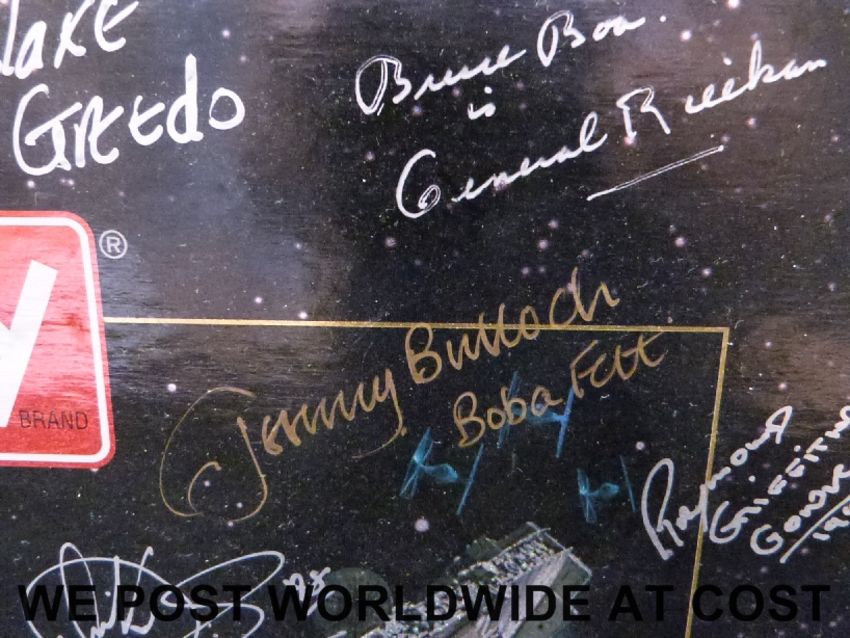 Greedo
Bruce Boa.
is
General Rieekan
®
BRAND
Jeremy Bulloch
Boba Fett
Raymond
Griffiths
WE POST WORLDWIDE AT COST